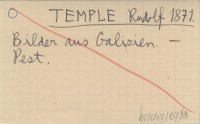 TEMPLE Rudolf 1871.
Bilder aus Galizien. –
Pest.